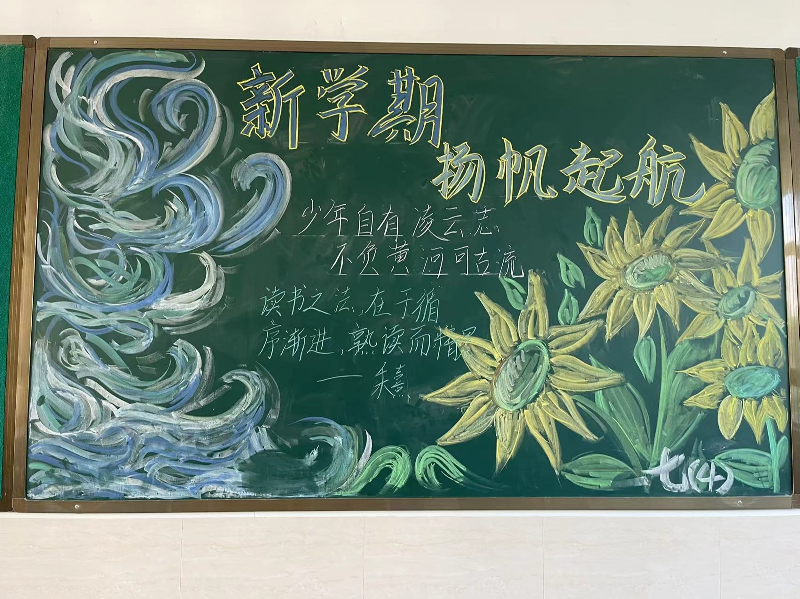 新学期
扬帆起航
少年自有凌云志
不负黄河可古流
读书之法,在于循
序渐进,熟读而精
——朱熹
七(4)